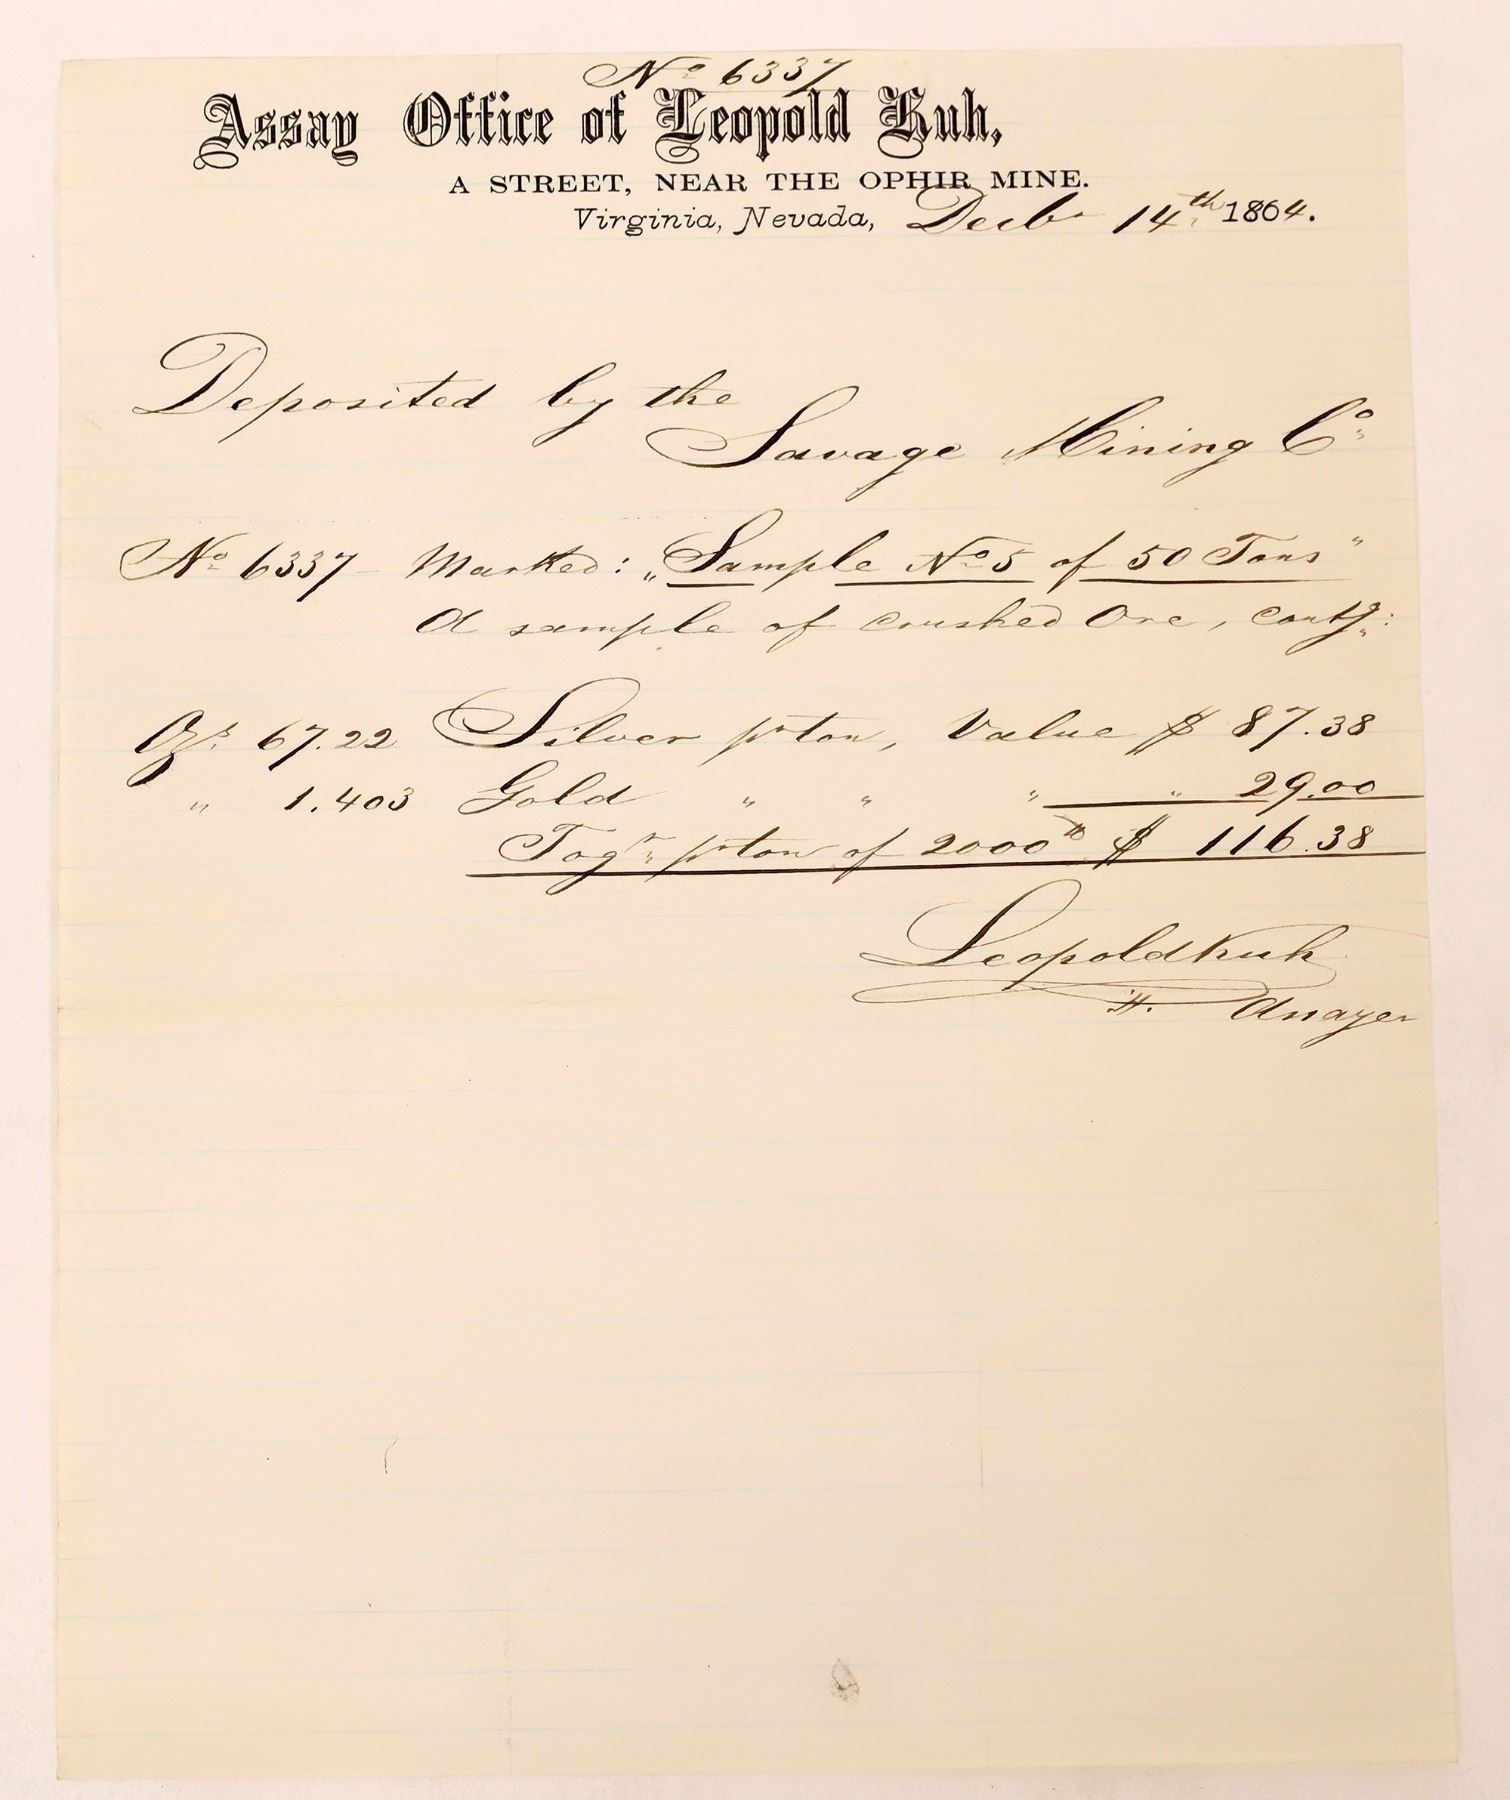 No 6337
Assay Office of Leopold Kuh,
A STREET, NEAR THE OPHIR MINE.
Virginia, Nevada, Decbr 14th 1864.
Deposited by the
Savage Mining Co
No 6337 Marked: „Sample No 5 of 50 Tons"
A sample of crushed Ore, contg:
Ozs. 67.22 Silver pr ton, Value $ 87.38
" 1.403 Gold " " " " 29.00
Togr pr ton of 2000 lb $ 116.38
Leopold Kuh
Assayer